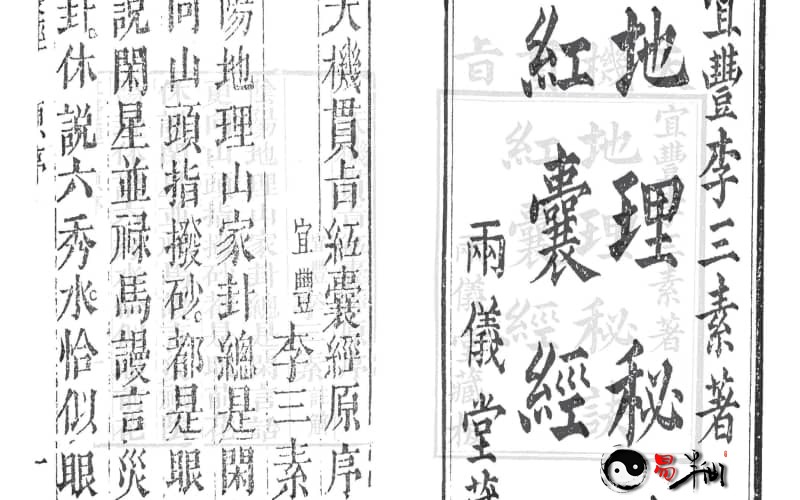 宜豐李三素著
地理秘
紅囊經
兩儀堂
天機貫旨紅囊經原序
宜豐李三素
陽地理山家卦總是閑
山頭指撥砂。都是眼
說閑星並祿馬謾言災
卦。休說六秀水。恰似眼
原序 一
易